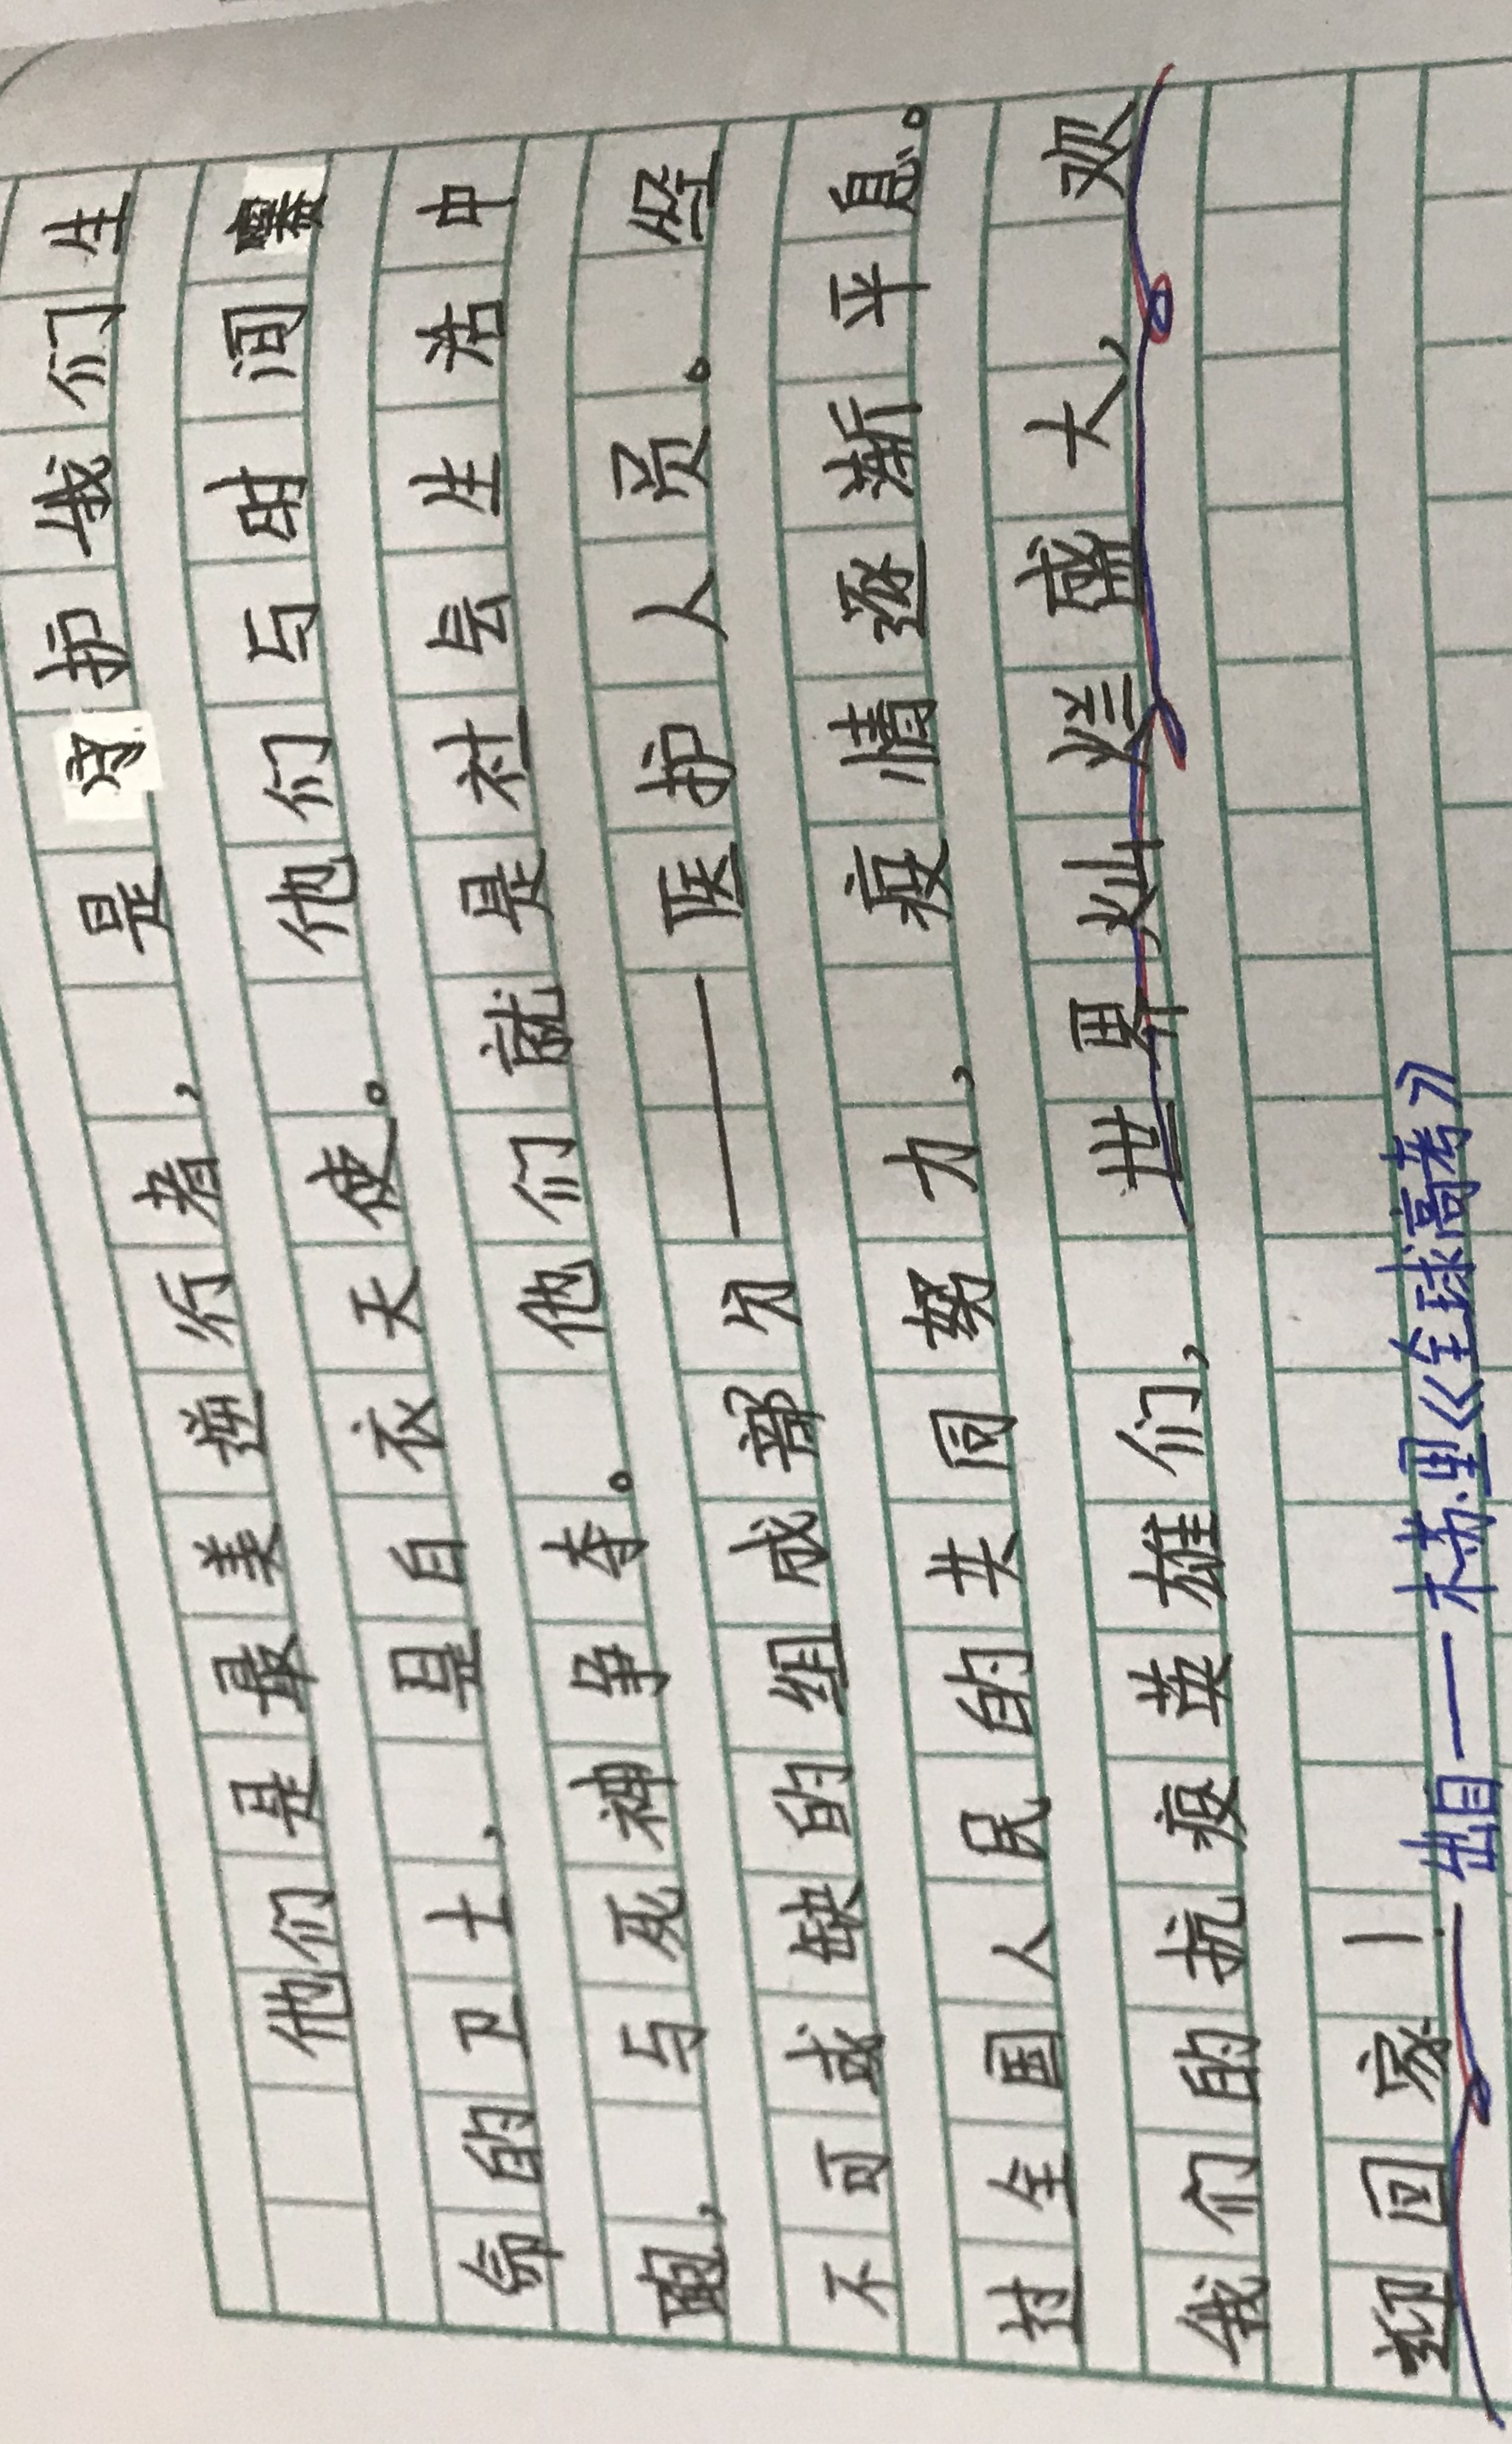 他们是最美逆行者，是守护我们生
命的卫士，是白衣天使。他们与时间赛
跑，与死神争夺。他们就是社会生活中
不可或缺的组成部分——医护人员。经
过全国人民的共同努力，疫情逐渐平息。
我们的抗疫英雄们，世界灿烂盛大，欢
迎回家！
出自——木苏里《全球高考》